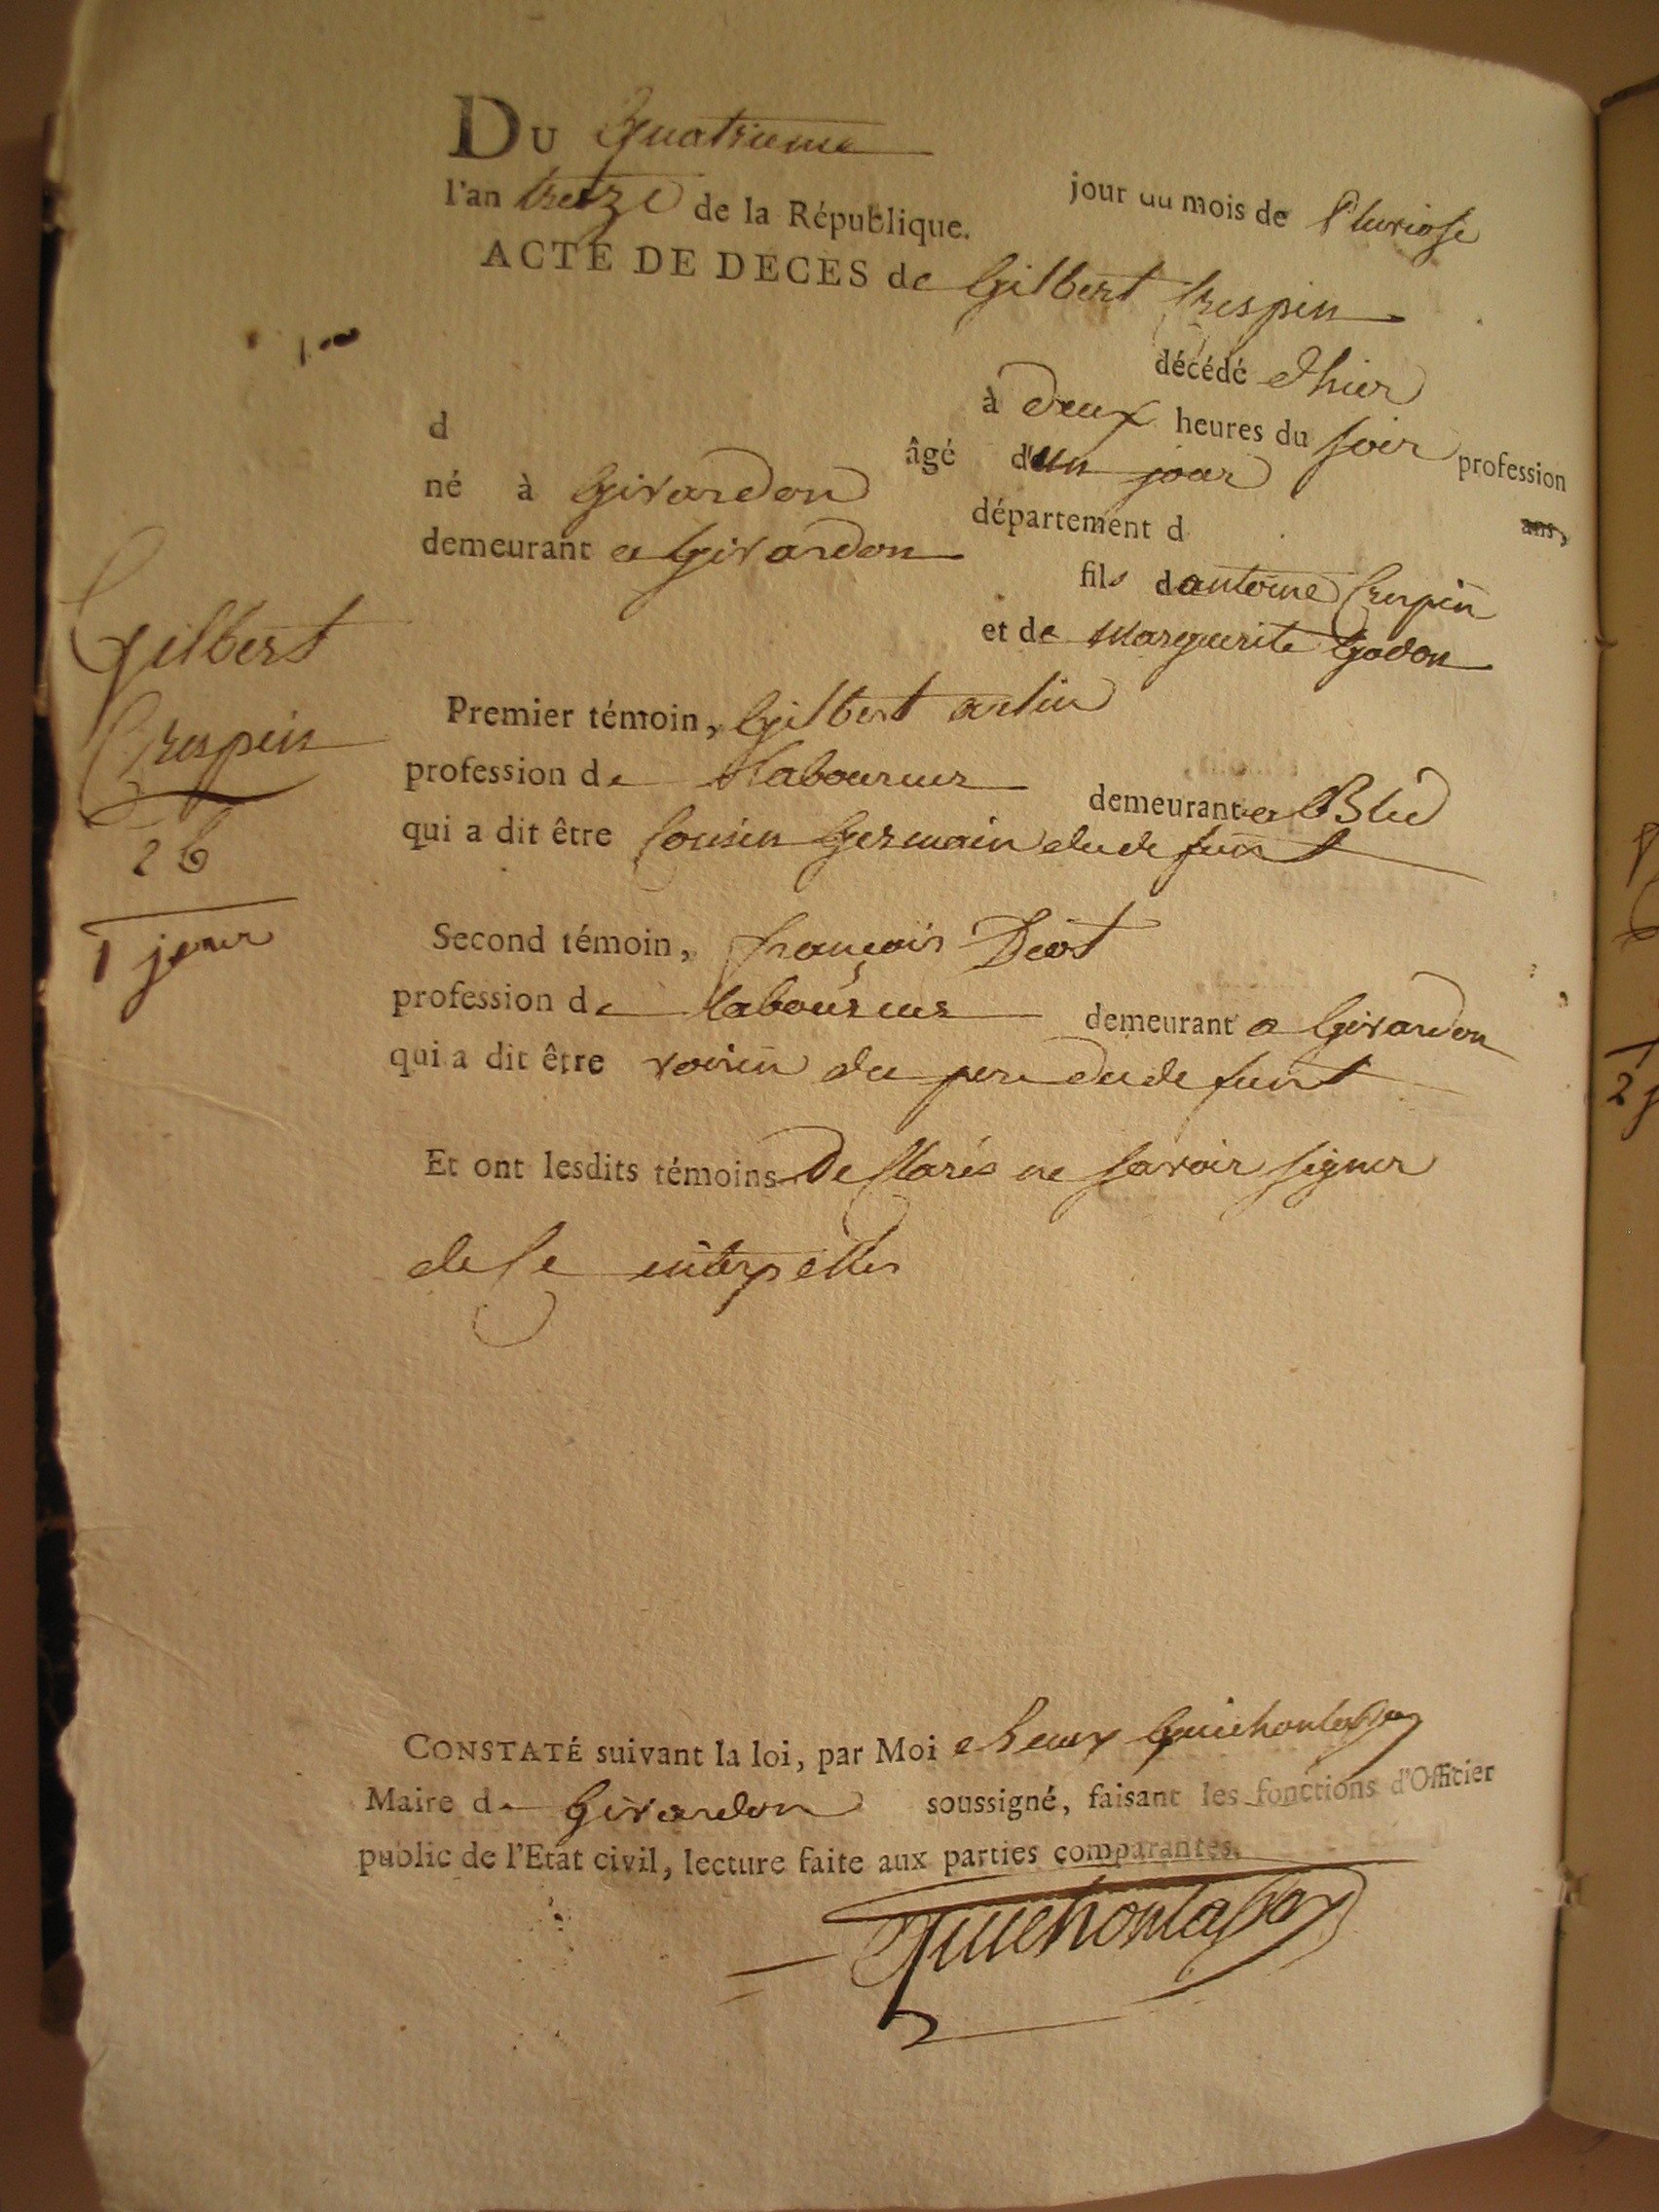 DU quatrieme jour du mois de Pluviose
l'an treize de la République.
ACTE DE DECES de Gilbert Crespin
décédé d'hier
à deux heures du soir profession
d
âgé d'un jour ans,
né à Givardon département d
demeurant a Givardon fils dantoine Crespin
et de Marguerite Godon
Gilbert
Crespin
26
1 jour
Premier témoin, Gilbert
profession de laboureur demeurant a Blet
qui a dit être Cousin Germain du defunt
Second témoin, françois
profession de laboureur demeurant a Givardon
qui a dit être voisin du pere du defunt
Et ont lesdits témoins declarés ne savoir signer
de ce interpellés
CONSTATÉ suivant la loi, par Moi
Maire de Givardon soussigné, faisant les fonctions d'Officier
public de l'Etat civil, lecture faite aux parties comparantes.
2 j